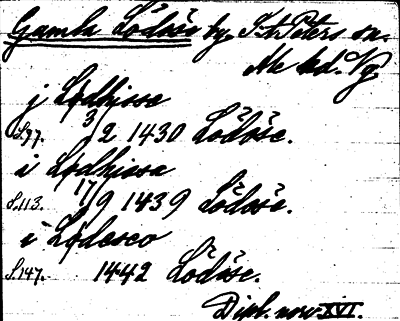 Gamla Lödöse by, S:t Peters sn.
Ale hd. Vg
j Lødhisse
S.97. 3/2 1430 Lödöse.
i Lødhissa
S.113. 17/9 1439 Lödöse.
i Lødesco
S.147. 1442 Lödöse.
Dipl. norv. XVI.